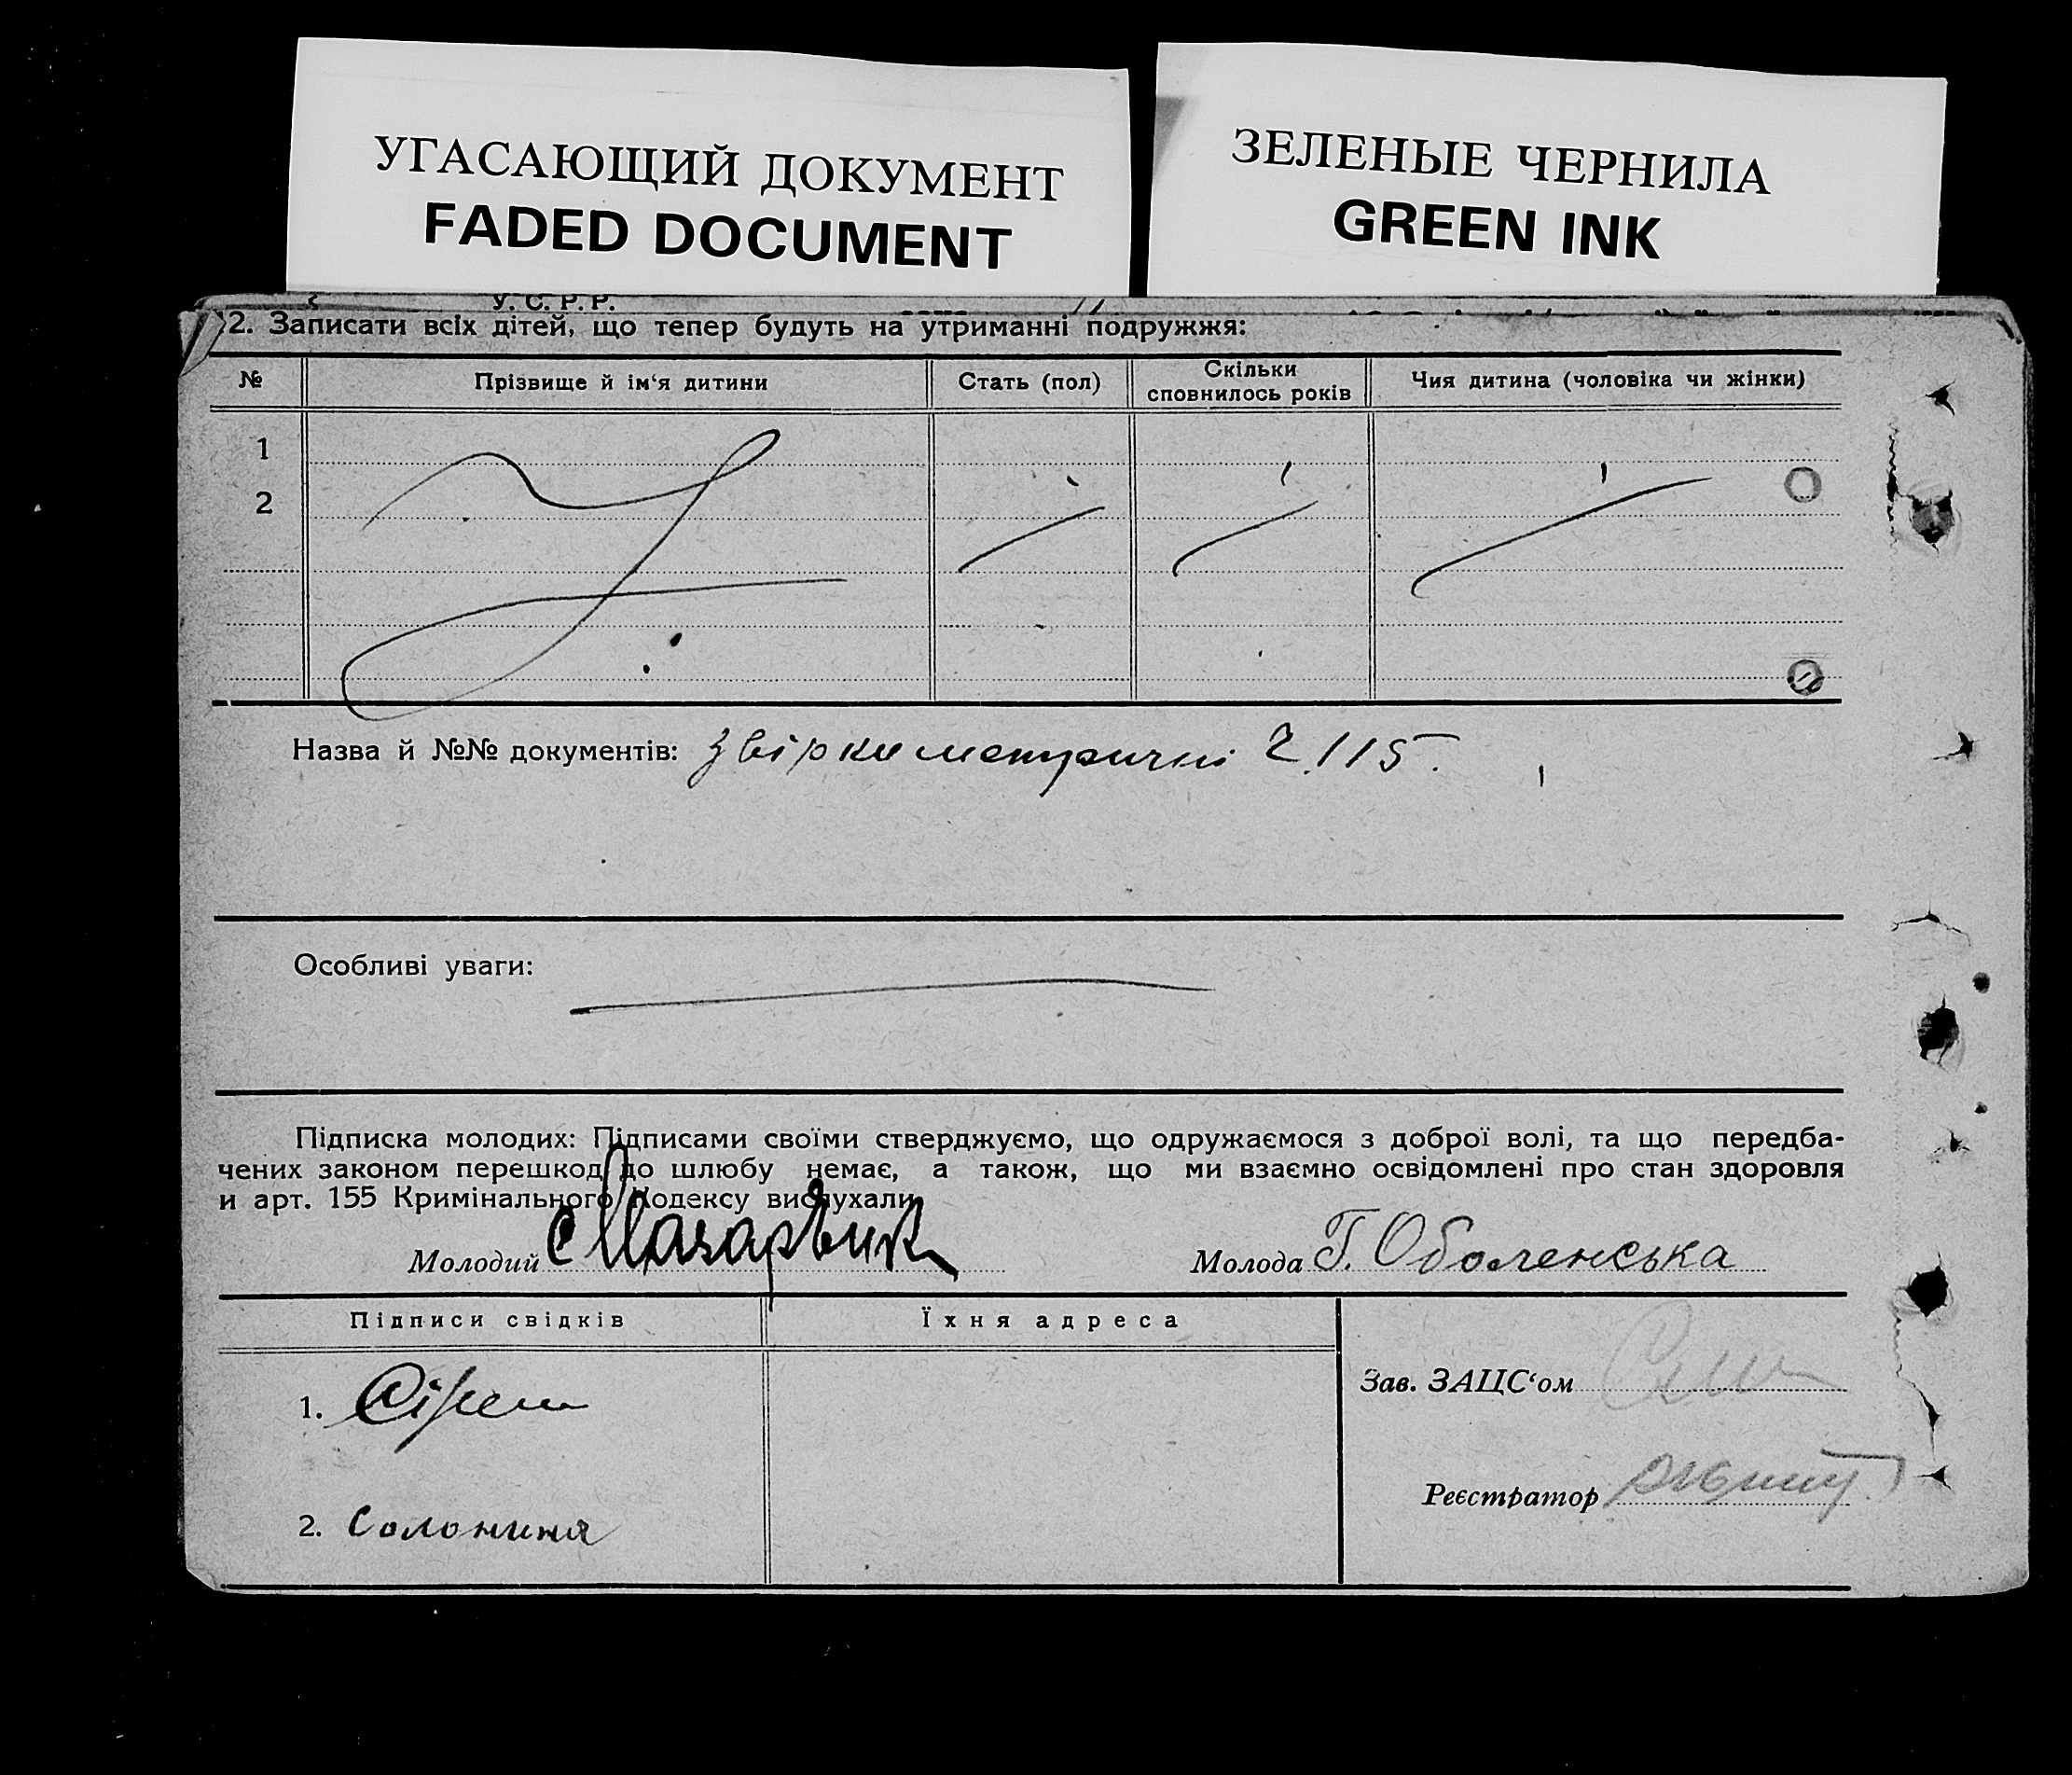 УГАСАЮЩИЙ ДОКУМЕНТ
FADED DOCUMENT
ЗЕЛЕНЫЕ ЧЕРНИЛА
GREEN INK
У. С. Р. Р.
2. Записати всіх дітей, що тепер будуть на утриманні подружжя:
№ Прізвище й ім‘я дитини Стать (пол) Скільки сповнилось років Чия дитина (чоловіка чи жінки)
1
2
Назва й №№ документів: звірки метричні 2115.
Особливі уваги:
Підписка молодих: Підписами своїми стверджуємо, що одружаємося з доброї волі, та що передба-
чених законом перешкод до шлюбу немає, а також, що ми взаємно освідомлені про стан здоровля
и арт. 155 Кримінального Кодексу вислухали
Молодий Молода Г. Оболенська
Підписи свідків Їхня адреса
Зав. ЗАЦС‘ом
1.
Реєстратор
2. Солонина